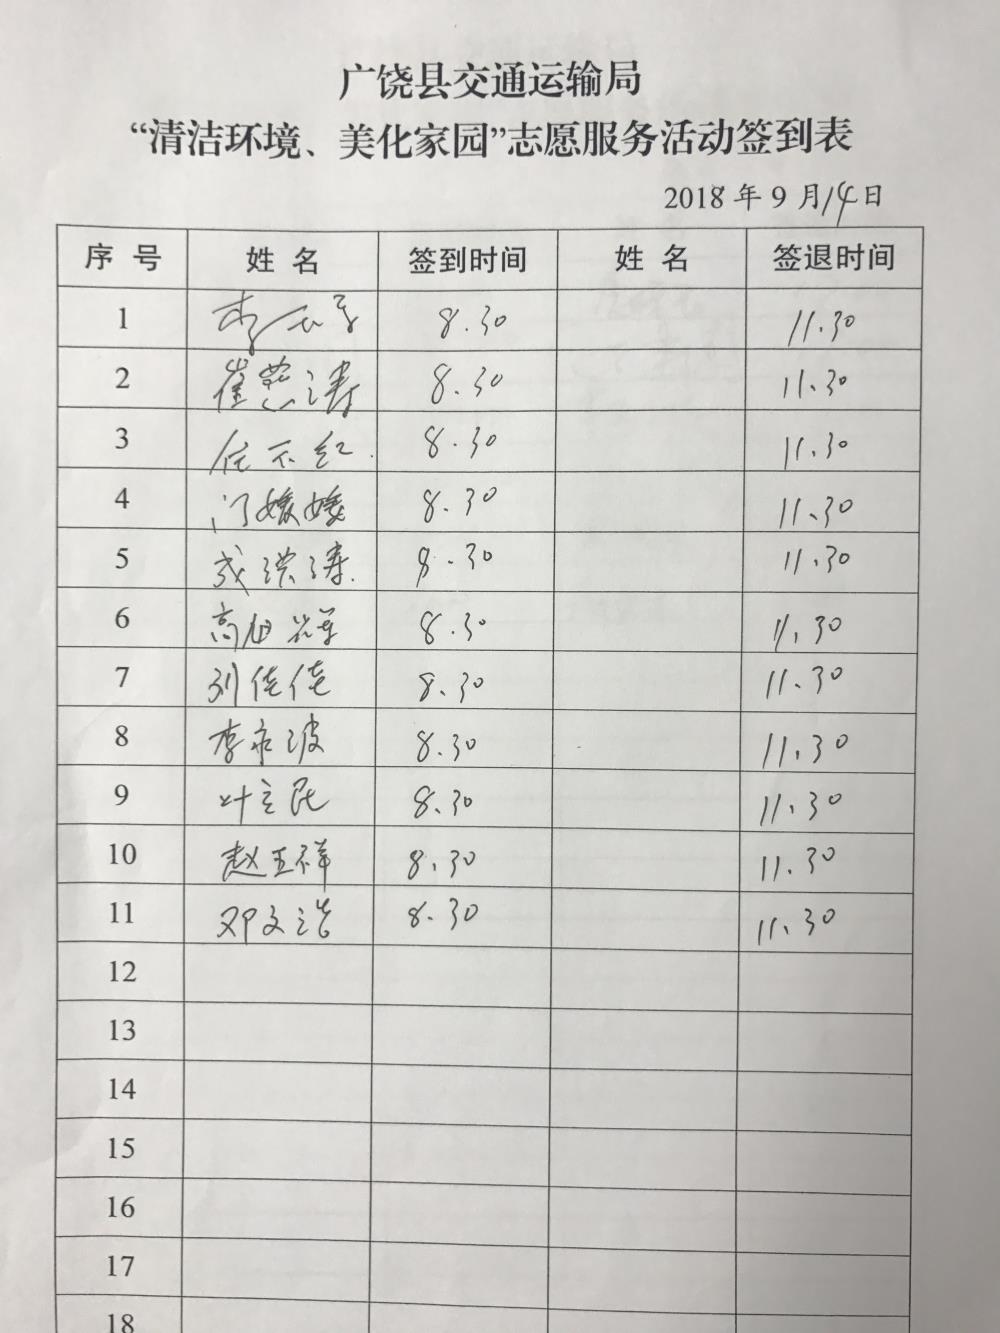 广饶县交通运输局
“清洁环境、美化家园”志愿服务活动签到表
2018 年 9 月14日
序 号 姓 名 签到时间 姓 名 签退时间
1 8.30 11.30
2 崔慧涛 8.30 11.30
3 任不红 8.30 11.30
4 门媛媛 8.30 11.30
5 成洪涛 8.30 11.30
6 高 8.30 11.30
7 刘佳佳 8.30 11.30
8 李永波 8.30 11.30
9 叶立民 8.30 11.30
10 赵玉祥 8.30 11.30
11 邓文浩 8.30 11.30
12
13
14
15
16
17
18